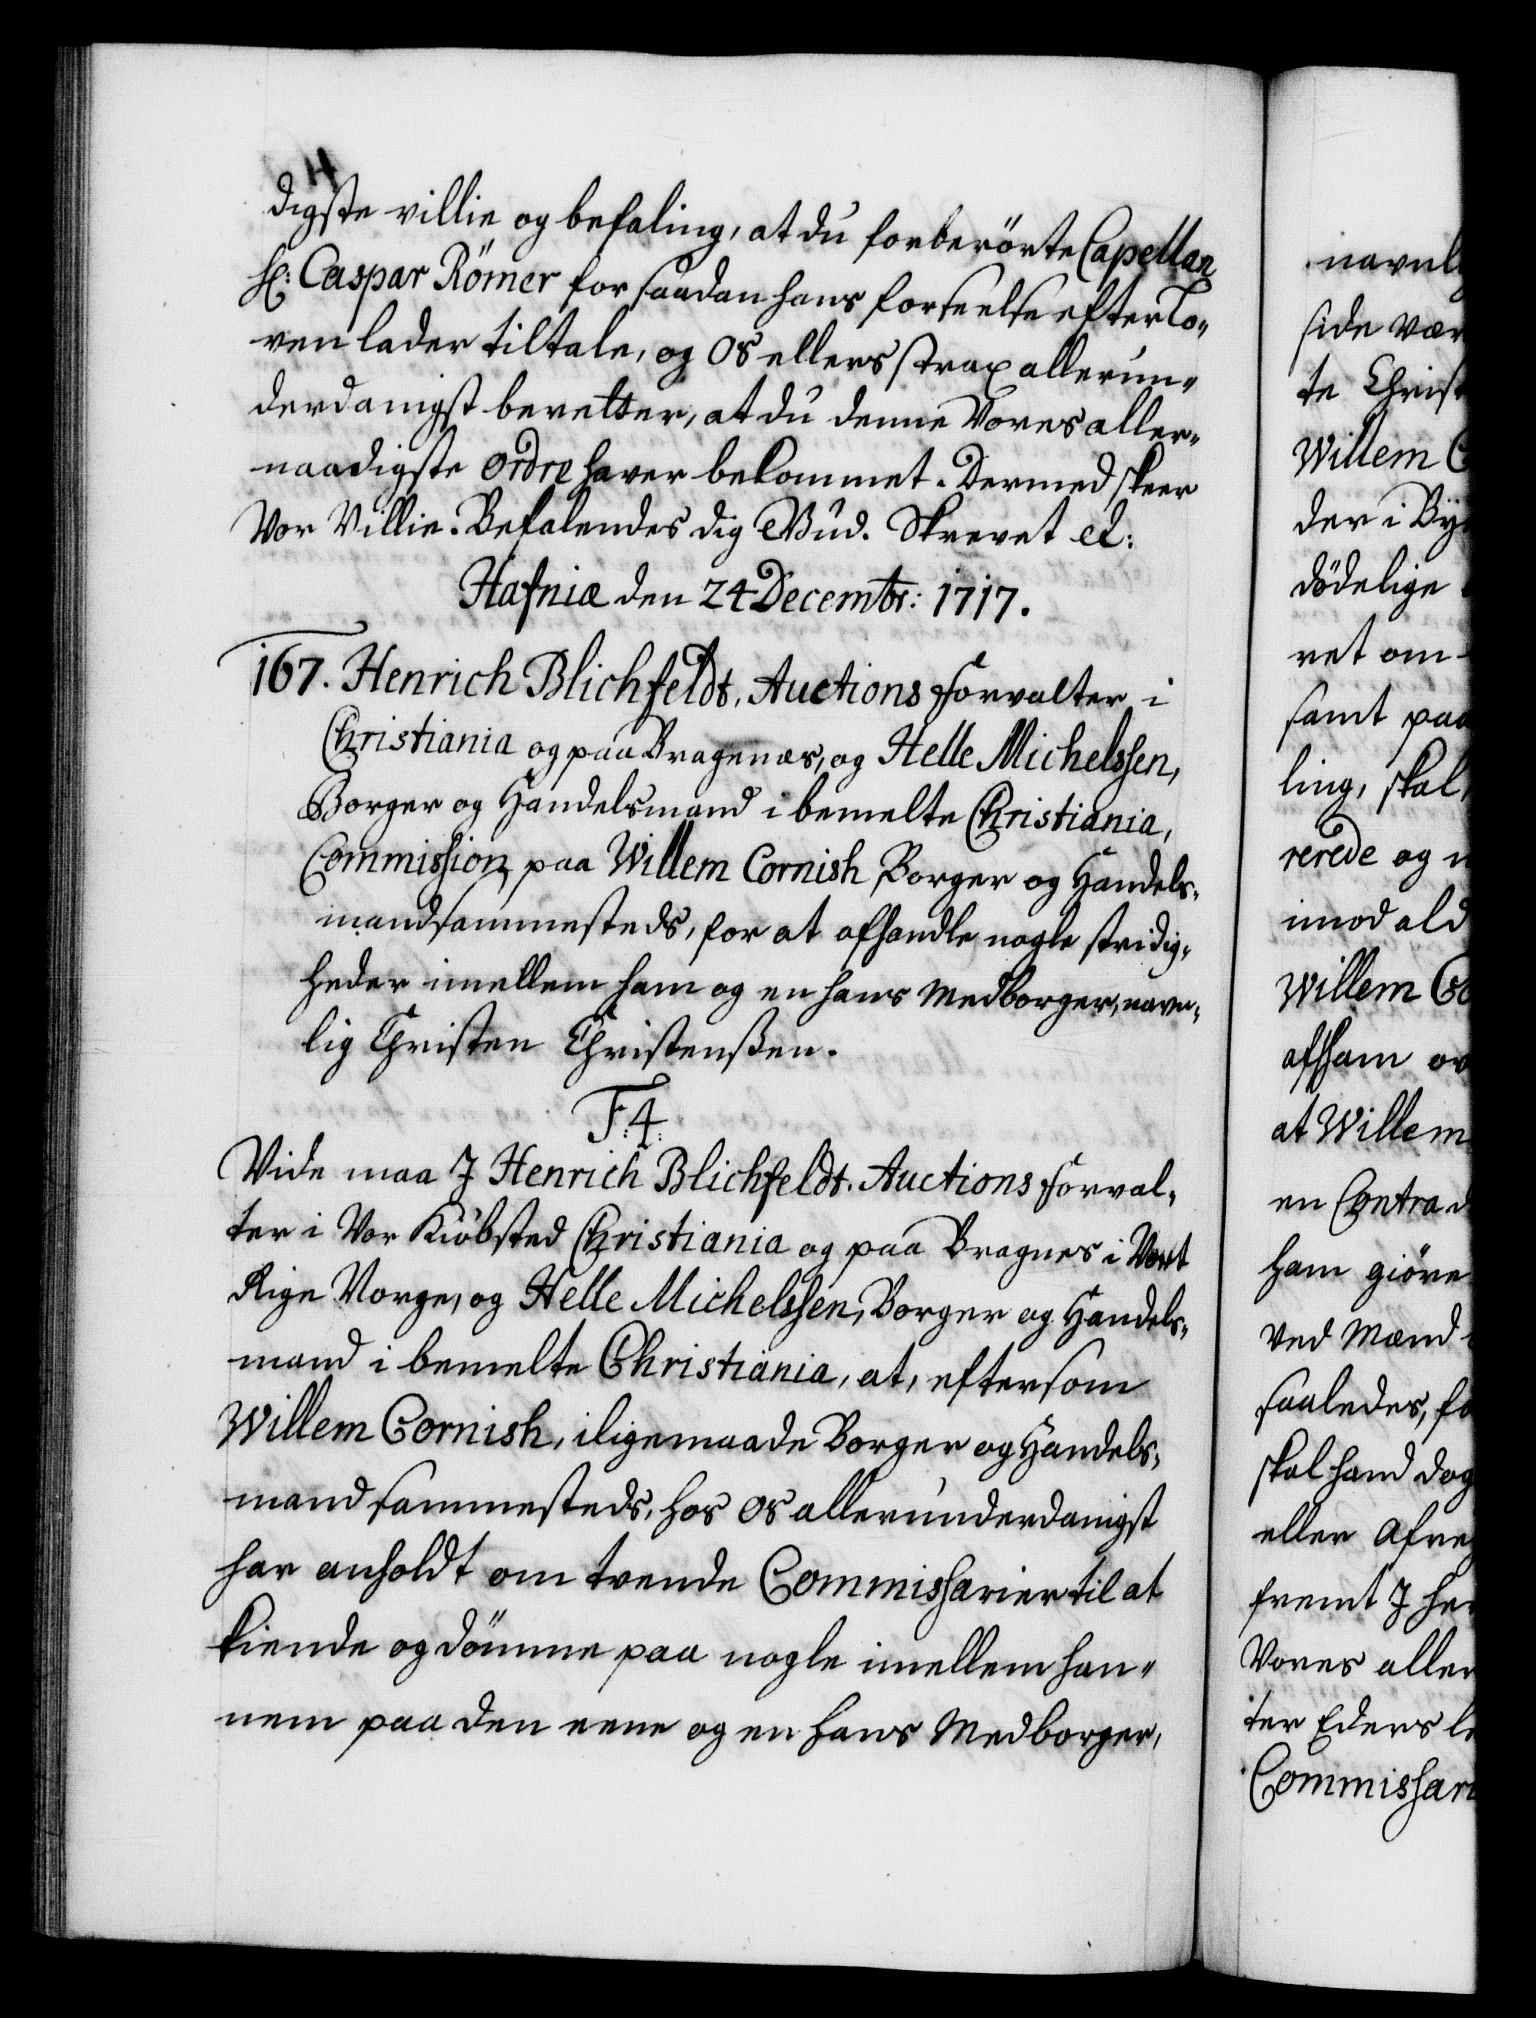 digste villie og befaling, at du forberörte Capellan
Hr: Caspar Römer for saadan hans forseelse efter Lo-
ven lader tiltale, og Os ellers strax allerun-
derdanigst beretter, at du denne Vores aller-
naadigste Ordre haver bekommet. Dermed skeer
Vor Villie. Befalendes dig GVud. Skrevet etc:
Hafniæ den 24 Decembr: 1717.
167. Henrich Blichfeldt, Auctions Forvalter i
Christiania og paa Bragenæs, og Helle Michelssen,
Borger og Handelsmand i bemelte Christiania,
Commission paa Willem Cornish Borger og Handels-
mand sammesteds, for at afhandle nogle stridig-
heder imellem ham og en hans Medborger, navn-
lig Christen Christenßen.
F: 4.
Vide maa I Henrich Blichfeldt. Auctions Forval-
ter i Vor Kiöbsted Christiania og paa Bragnes i Vort
Rige Norge, og Helle Michelssen, Borger og Handels-
mand i bemelte Christiania, at, eftersom
Willem Cornish, iligemaade Borger og Handels-
mand sammesteds, hos Os allerunderdanigst
har anholdt om tvende Commissarier til at
kiende og dömme paa nogle imellem han-
nem paa den eene og en hans Medborger,
navnl
side vær
te Christ
Willem C
der i By
dödelige
ret om
samt paa
ling, skal
rerede og
imod ald
Willem Co
afham ov
at Willem
en Contra d
ham giöre
ved Mænd
saaledes, fo
skal hand dog
eller Afre
fremt I her
Vores aller
ter Eders le
Commissari